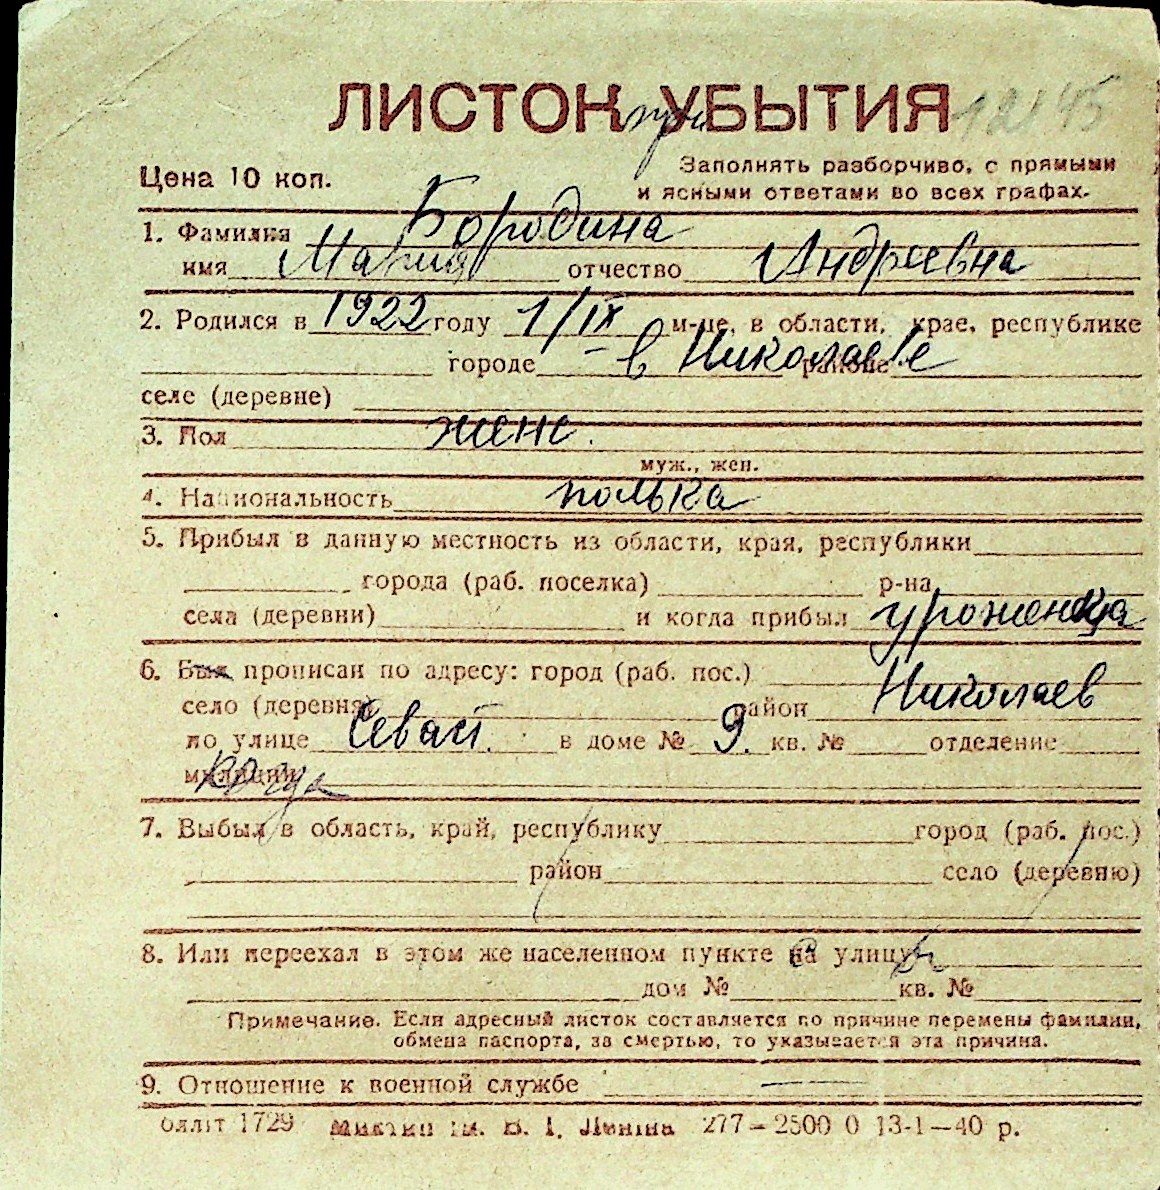 ЛИСТОК при УБЫТИЯ 12/45
Цена 10 коп.
Заполнять разборчиво, с прямыми
и ясными ответами во всех графах.
1. Фамилия Бородина
имя Мария отчество Андреевна
2. Родился в 1922 году 1/IX м-це, в области, крае, республике
городе - в Николаеве районе
селе (деревне)
3. Пол женс.
муж., жен.
4. Национальность полька
5. Прибыл в данную местность из области, края, республики
города (раб. поселка) р-на
села (деревни) и когда прибыл уроженца
6. Был прописан по адресу: город (раб. пос.)
село (деревня) район Николаев
по улице Севаст. в доме № 9. кв. № отделение
милиции
7. Выбыл в область, край, республику город (раб. пос.)
район село (деревню)
8. Или переехал в этом же населенном пункте на улицу
дом № кв. №
Примечание. Если адресный листок составляется по причине перемены фамилии,
обмена паспорта, за смертью, то указывается эта причина.
9. Отношение к военной службе —
1729 Ленина 277-2500 0 13-1-40 р.